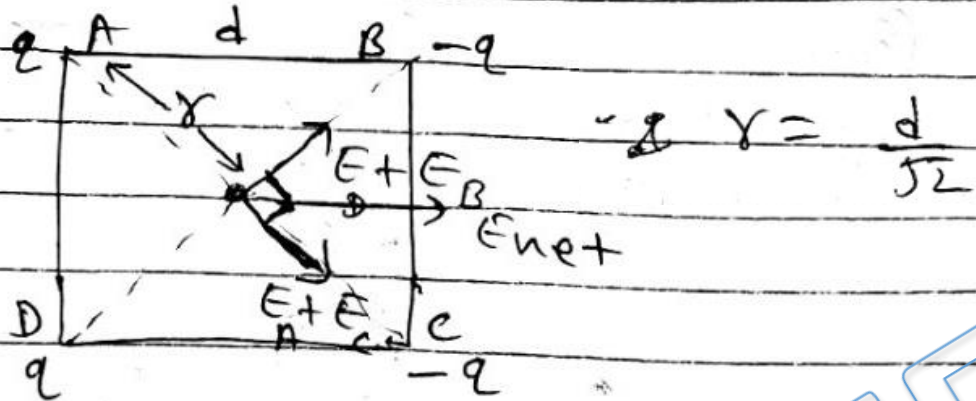 q A d B -q
r
r = d/√2
E_D + E_B
E_net
E_A + E_C
D C
q -q